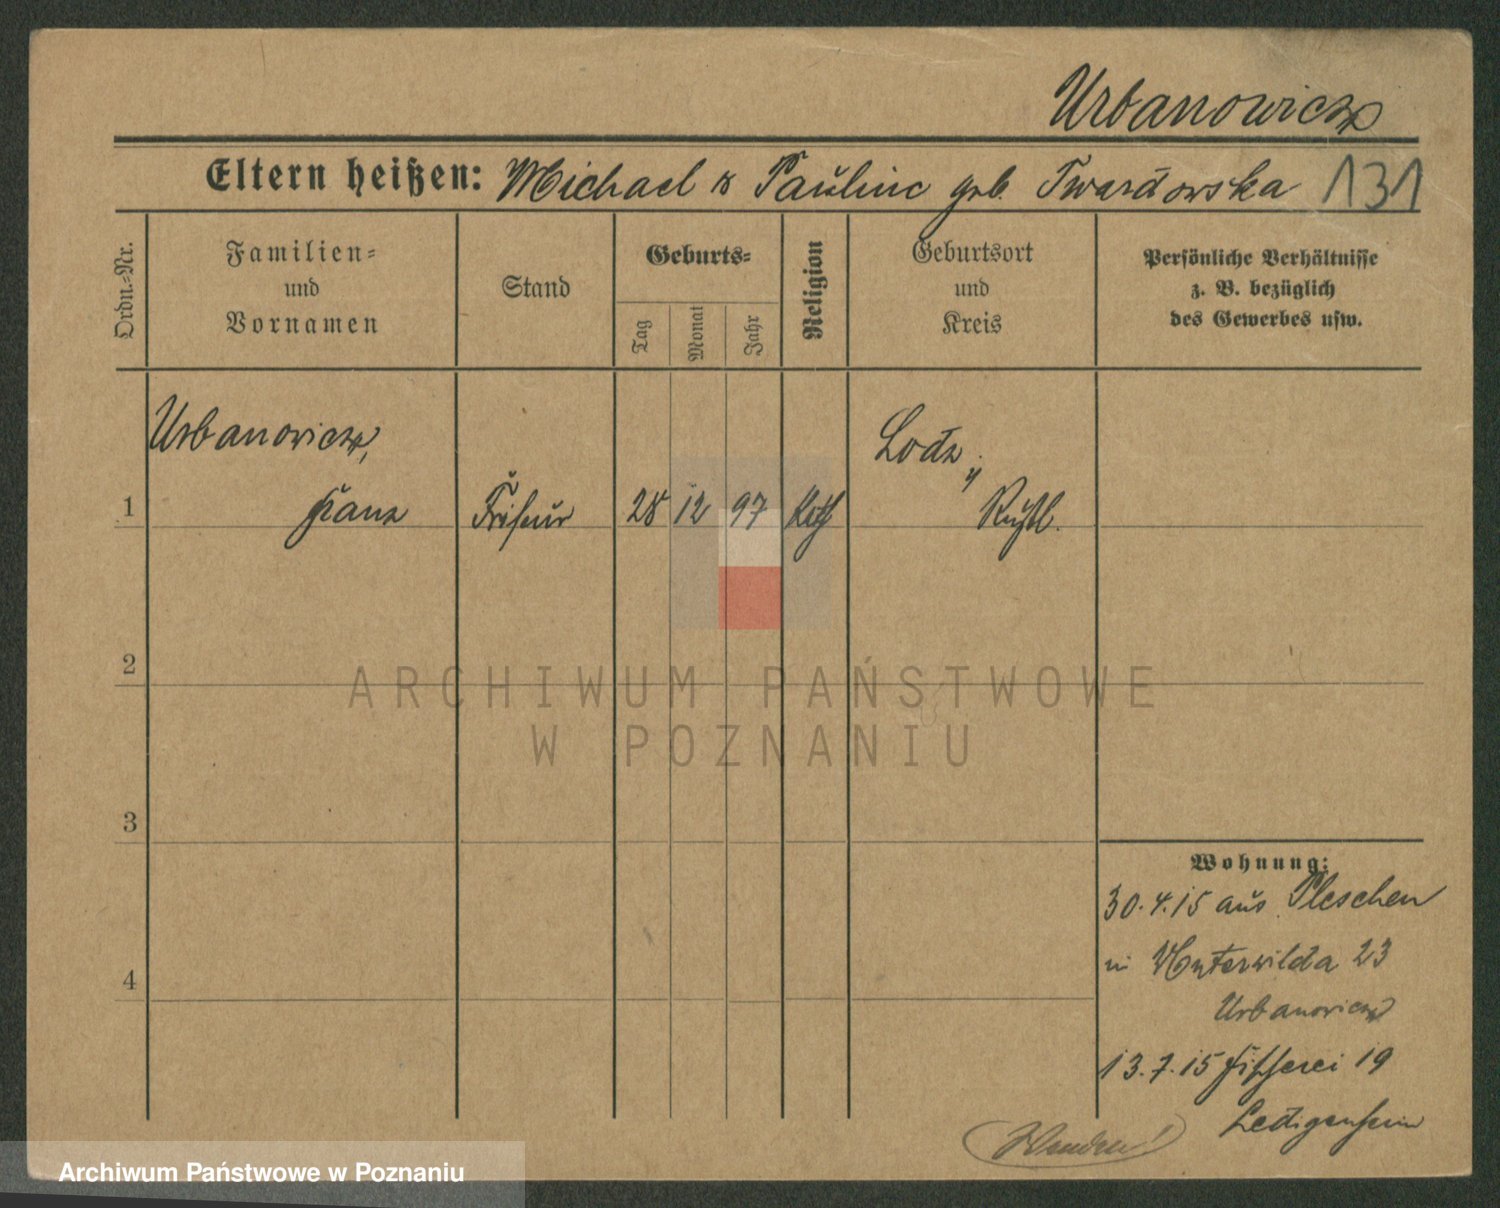 Urbanowicz
Eltern heißen: Michael & Pauline geb. Twardowska 131
Ordn.-Nr.
Familien-
und
Vornamen
Stand
Geburts-
Tag
Monat
Jahr
Religion
Geburtsort
und
Kreis
Persönliche Verhältnisse
z. B. bezüglich
des Gewerbes usw.
Urbanowicz,
1 Franz Friseur 28 12 97 Kath Lodz,
Rußl.
2
3
4
Wohnung:
30.4.15 aus Pleschen
in Unterwilda 23
Urbanowicz
13.7.15 Fischerei 19
Ledigenheim
Wenden!
ARCHIWUM PAŃSTWOWE
W POZNANIU
Archiwum Państwowe w Poznaniu